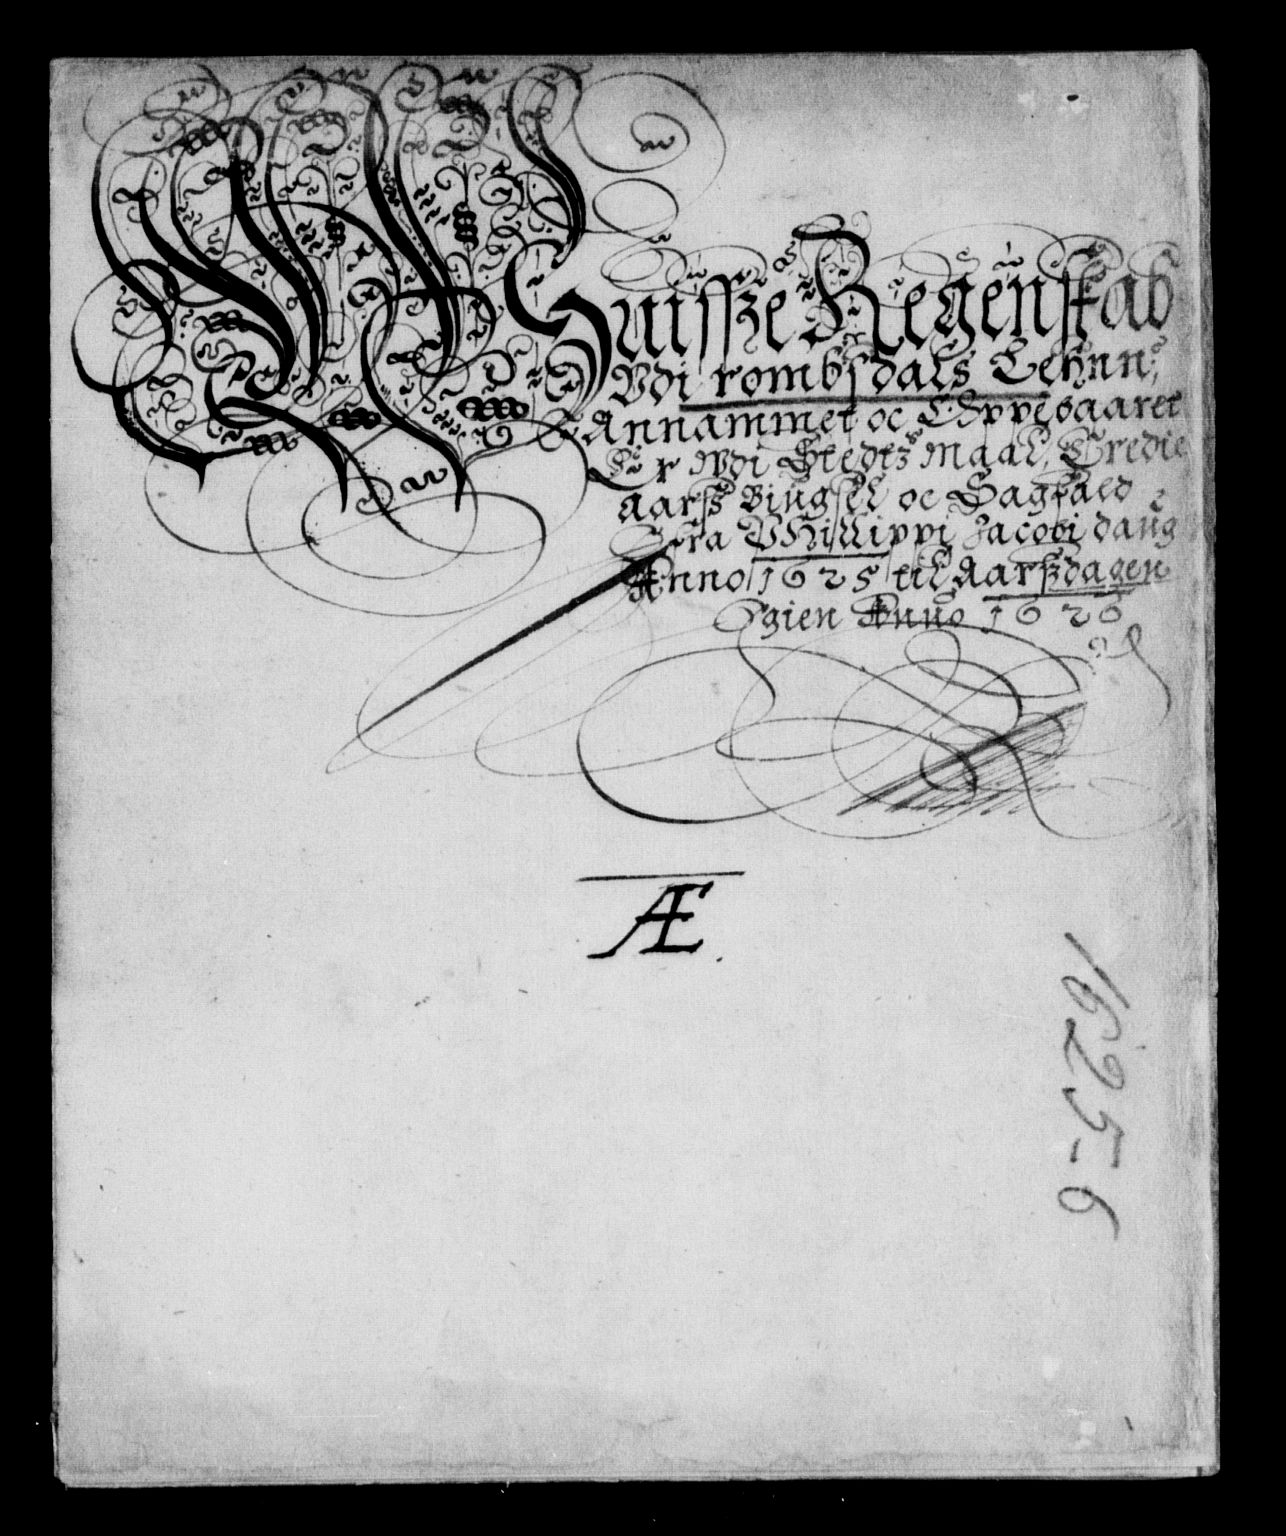 Wuisse Regenskab
Vdi rombsdals Lehnn,
Annammet oc Oppebaaret
Er Wdi Stedtz Maal, Tredie
aarß Bÿgsel oc Sagfald
Fra Philippi Jacobi daug
Anno 1625 til Aarßdagen
Igien Anno 1626
Æ
1625-6